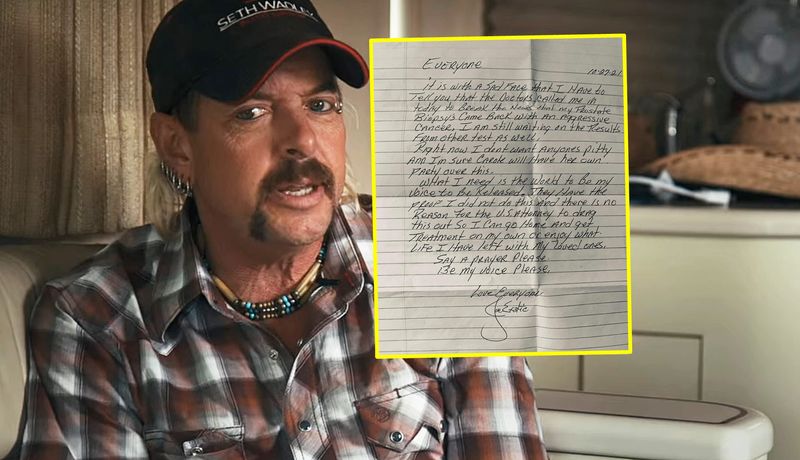 SETH WADLEY
EVERYONE 10-27-21
It is with a SAd FACE that I HAVE to
Tell you that the Doctors CAlled me in
today to BreAk the News that my Prostate
Biopsys CAme BAck with An Aggressive
CANcer, I Am still wAiting on the Results
From other test As well.
Right now I dont wAnt Anyones pitty
And I'm sure CArole will HAve her own
PArty over this.
WhAt I need is the World to Be my
voice to Be ReleAsed, They HAve the
proof I did not do this And there is no
ReAson For the U.S. Attorney to drAg
this out So I CAn go Home And get
TreAtment on my own or enjoy whAt
Life I HAve left with my Loved ones.
SAy A prAyer PleAse
Be my voice PleAse.
Love Everyone
Joe Exotic